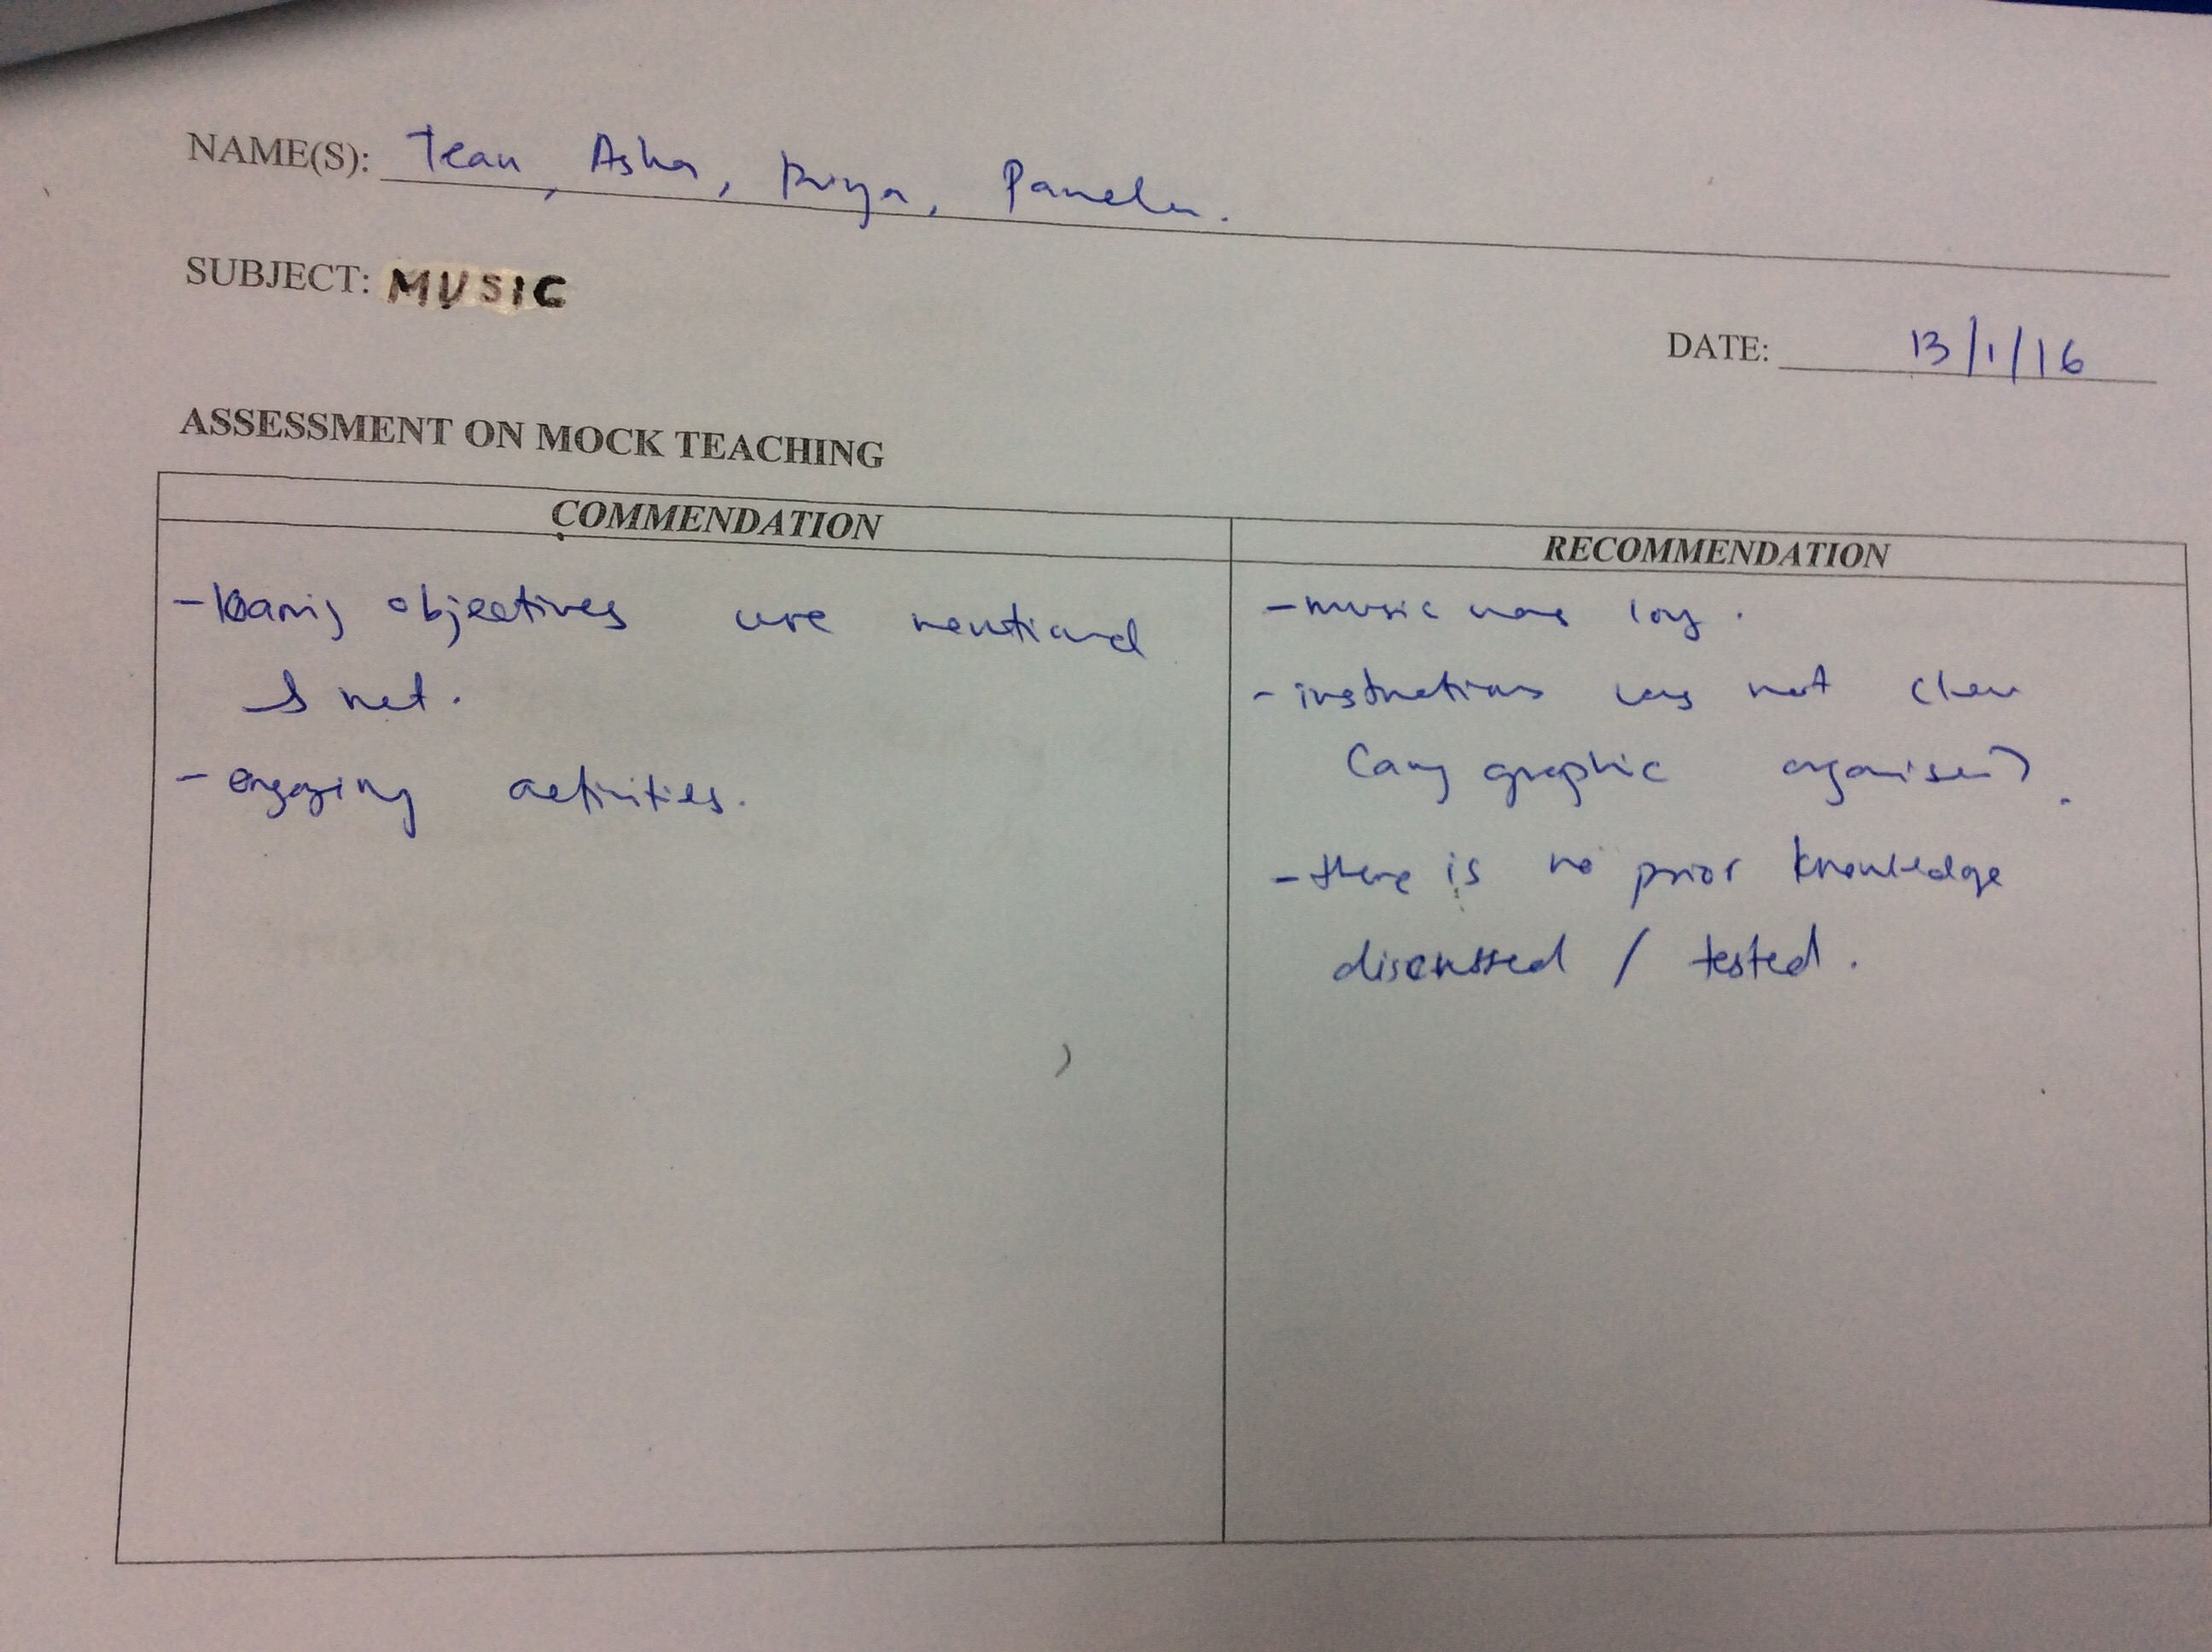 NAME(S): Tean, Asha, Priya, Pamela.
SUBJECT: MUSIC
DATE: 13/1/16
ASSESSMENT ON MOCK TEACHING
COMMENDATION
RECOMMENDATION
- objectives were mentioned
& met.
- engaging activities.
- music was long.
- instructions was not clear
(any graphic organiser?).
- there is no prior knowledge
discussed / tested.